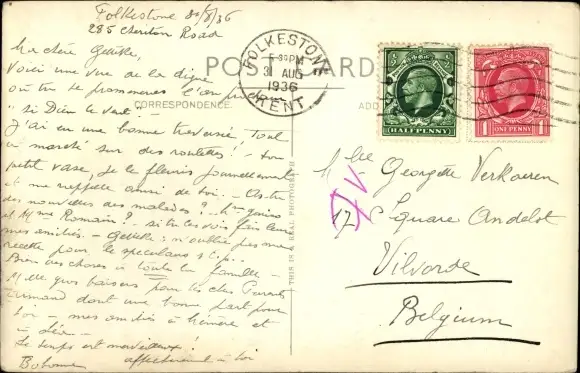 Folkestone 30/8/36
285 Cheriton Road
Ma chère Getteke,
Voici une vue de la digue
où tu te promeneras l'an prochain
"si Dieu le veut".
J'ai eu une bonne traversée, Tout
a marché sur des roulettes! - ton
petit vase, je le fleuris journellement
et me rappelle ainsi de toi. - As-tu
des nouvelles des malades?
et Mme Romain? - si tu les vois fais leur
mes amitiés. - Getteke: n'oublie pas ma
recette pour le speculaus s.t.p. -
Bien des choses à toute la famille -
Mille gros baisers pour tes chers Parents
Armand dont une bonne part pour
toi - mes amitiés à et
à
Le temps est merveilleux!
Bobonne affectueux à toi
POST CARD
CORRESPONDENCE.
ADD
THIS IS A REAL PHOTOGRAPH
FOLKESTONE
PM
31 AUG
1936
KENT
HALFPENNY
ONE PENNY
Mlle Georgette Verkaeren
17 Square Andelot
Vilvorde
Belgium